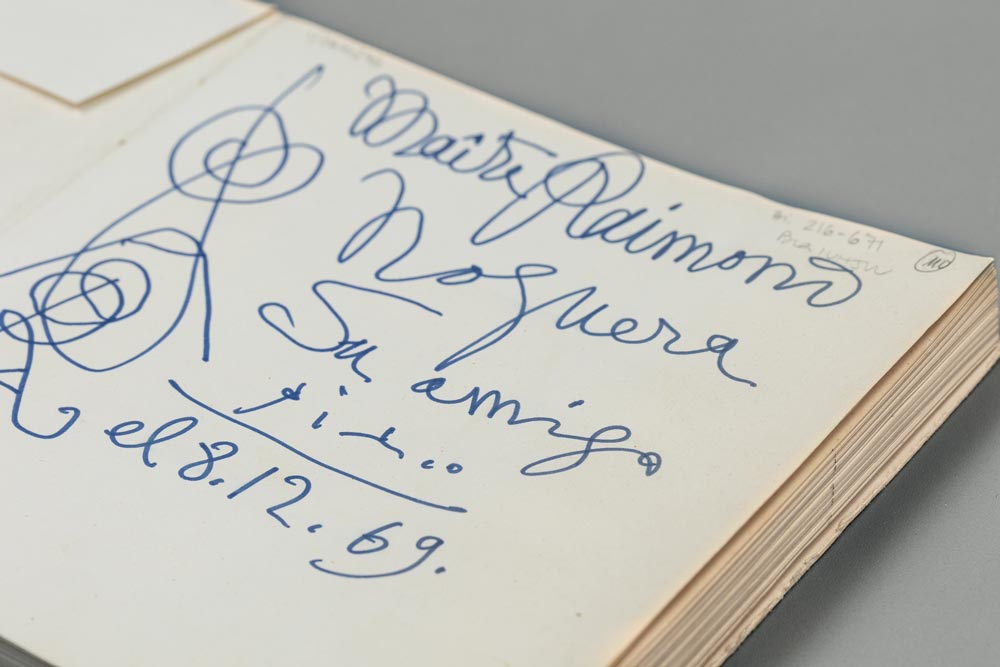 Maître Raimond
Noguera
Su amigo
el 8.12.69.
216-671